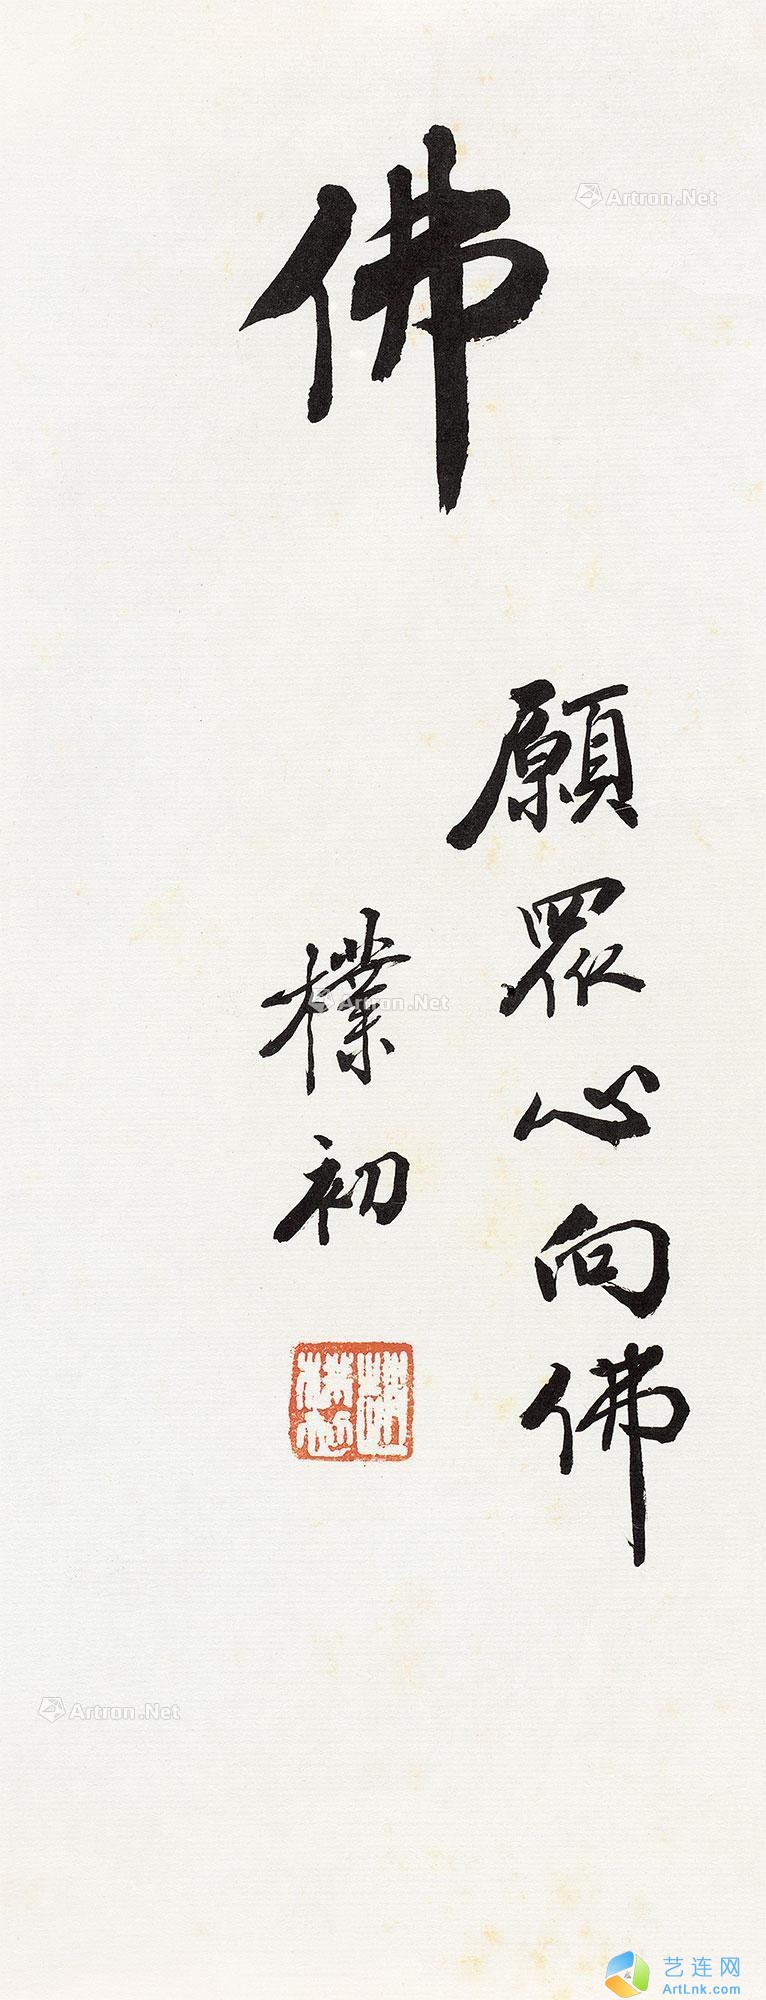 佛
願眾心向佛
樸初
趙樸初
Artron.Net
Artron.Net
Artron.Net
艺连网
ArtLnk.com